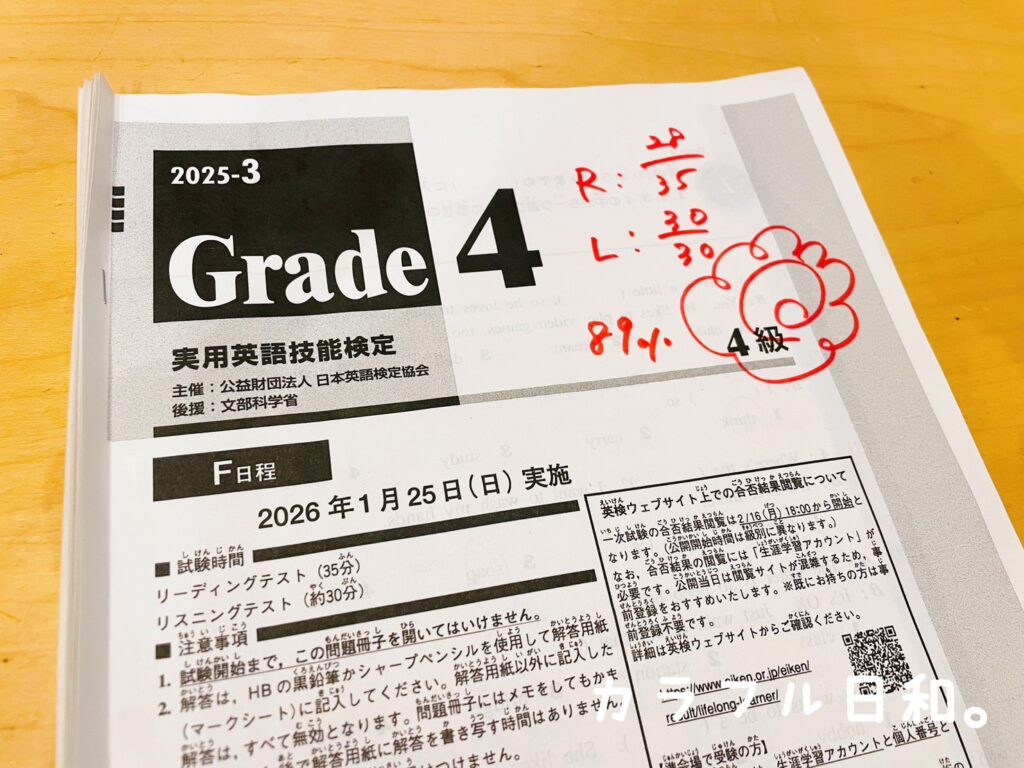 2025-3
Grade 4
実用英語技能検定
主催：公益財団法人 日本英語検定協会
後援：文部科学省
R: 28/35
L: 30/30
89%
4級
F日程
2026年1月25日（日）実施
■試験時間
リーディングテスト（35分）
リスニングテスト（約30分）
■注意事項
1. 試験開始まで、この問題冊子を開いてはいけません。
2. 解答は、HBの黒鉛筆かシャープペンシルを使用して解答用紙
（マークシート）に記入してください。解答用紙以外に記入した
解答は、すべて無効となります。問題冊子にはメモをしてもかま
後で解答用紙に解答を書き写す時間はありません
英検ウェブサイト上での合否結果閲覧について
一次試験の合否結果閲覧は2/16（月）18:00から開始と
なります。（公開開始時間は級別に異なります。）
なお、合否結果の閲覧には「生涯学習アカウント」が
必要です。公開当日は閲覧サイトが混雑するため、事
前登録をおすすめいたします。※既にお持ちの方は事
前登録不要です。
詳細は英検ウェブサイトからご確認ください。
https://www.eiken.or.jp/eiken/
result/lifelong-learner/
生涯学習アカウントと個人番号と
カラフル日和。